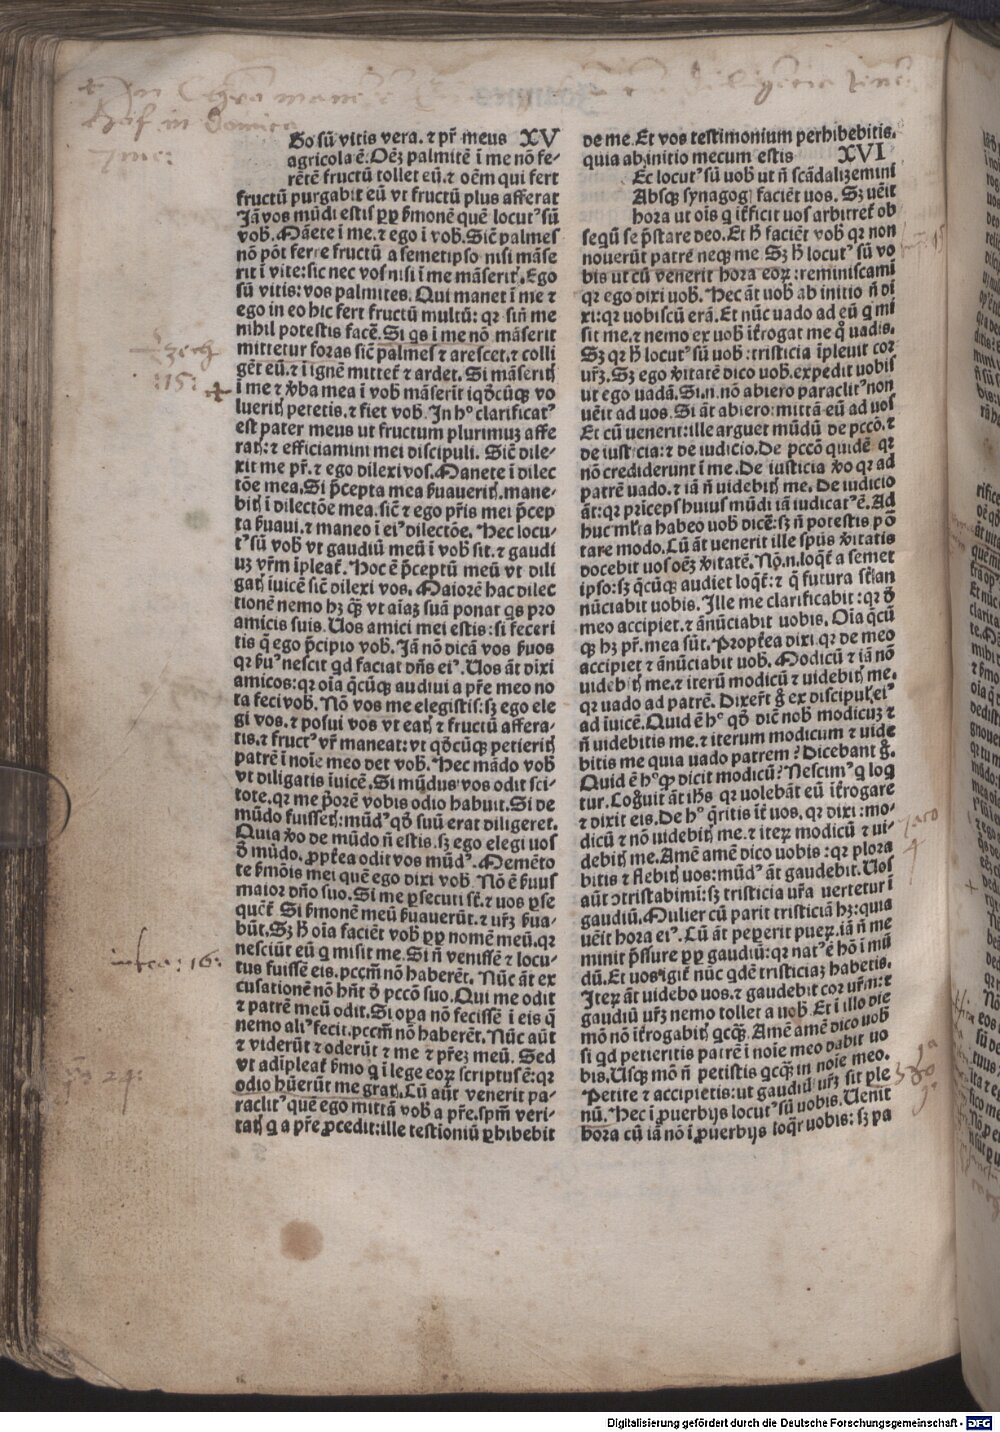 So sū vitis vera. ⁊ pr̄ meus XV
agricola ē: Oēꝫ palmitē ī me nō fe-
rētē fructū tollet eū. ⁊ oēm qui fert
fructū purgabit eū vt fructū plus afferat
Jā vos mūdi estis ꝓꝑ ẜmonē quē locutꝰ sū
vob̄. Māete ī me. ⁊ ego ī vob̄. Sic̄ palmes
nō pōt ferre fructū a semetipso nisi māse
rit ī vite: sic nec vos nisi ī me māseritꝭ. Ego
sū vitis: vos palmites. Qui manet ī me ⁊
ego in eo hic fert fructū multū: qꝛ sin̄ me
nihil potestis facē. Si qs ī me nō māserit
mittetur foras sic̄ palmes ⁊ arescet. ⁊ colli
gēt eū. ⁊ ī ignē mittet̄ ⁊ ardet. Si māseritꝭ
ī me ⁊ v̄ba mea ī vob̄ māserit iqd̄cūqꝫ vo
lueritꝭ petetis. ⁊ fiet vob̄. In hº clarificatꝰ
est pater meus ut fructum plurimuꝫ affe
ratꝭ: ⁊ efficiamini mei discipuli. Sic̄ dile-
xit me pr̄. ⁊ ego dilexi vos. Manete ī dilec
tōe mea. Si p̄cepta mea ẜuaueritꝭ. mane-
bitꝭ ī dilectōe mea. sic̄ ⁊ ego pr̄is mei p̄cep
ta ẜuaui. ⁊ maneo ī eiꝰ dilectōe. Hec locu-
tꝰ sū vob̄ vt gaudiū meū ī vob̄ sit. ⁊ gaudi
uꝫ vr̄m īpleat̄. Hoc ē p̄ceptū meū vt dili
gatꝭ īuicē sic̄ dilexi vos. Maiorē hac dilec
tionē nemo hꝫ qꝫ vt aīaꝫ suā ponat qs pro
amicis suis. Uos amici mei estis: si feceri
tis q̄ ego p̄cipio vob̄. Jā nō dicā vos ẜuos
qꝛ ẜuꝰ nescit qd faciat dn̄s eiꝰ. Uos āt dixi
amicos: qꝛ oīa q̄cūqꝫ audiui a pr̄e meo no
ta feci vob̄. Nō vos me elegistis: sꝫ ego ele
gi vos. ⁊ posui vos vt eatꝭ ⁊ fructū affera-
tis. ⁊ fructꝰ vr̄ maneat: vt qd̄cūqꝫ petieritꝭ
patrē ī noīe meo det vob̄. Hec mādo vob̄
vt diligatis īuicē. Si mūdus vos odit sci-
tote. qꝛ me p̄orē vobis odio habuit. Si de
mūdo fuissetꝭ: mūdꝰ qd̄ suū erat diligeret.
Quia v̄o de mūdo n̄ estis. sꝫ ego elegi uos
d̄ mūdo. ꝓpt̄ea odit vos mūdꝰ. Memēto
te ẜmōis mei quē ego dixi vob̄. Nō ē ẜuus
maior dn̄o suo. Si me ꝑsecuti st̄. ⁊ uos ꝑse
quēt̄. Si ẜmonē meū ẜuauerūt. ⁊ ur̄ꝫ ẜua-
būt. Sꝫ h̄ oīa faciēt vob̄ ꝓꝑ nomē meū. qꝛ
nesciūt eū q misit me. Si n̄ venissē ⁊ locu-
tus fuissē eis. pccm̄ nō haberēt. Nūc āt ex
cusationē nō hn̄t d̄ pccō suo. Qui me odit
⁊ patrē meū odit. Si oꝑa nō fecissē ī eis q̄
nemo aliꝰ fecit. pccm̄ nō haberēt. Nūc aūt
⁊ viderūt ⁊ oderūt ⁊ me ⁊ pr̄eꝫ meū. Sed
vt adīpleat̄ ẜmo q ī lege eoꝝ scriptus ē: qꝛ
odio hūerūt me gratꝭ. Cū aūt venerit pa-
raclitꝰ quē ego mittā vob̄ a pr̄e. spm̄ veri-
tatꝭ q a pr̄e ꝓcedit: ille testioniū ꝑhibebit
de me. Et vos testimonium perhibebitis.
quia ab initio mecum estis XVI
Ec locutꝰ sū uob̄ ut n̄ scādalizemini
Absqꝫ synagogꝭ faciēt uos. Sꝫ uēit
hora ut oīs q īt̄ficit uos arbitret̄ ob
seqū se p̄stare deo. Et h̄ faciēt vob̄ qꝛ non
nouerūt patrē neqꝫ me Sꝫ h̄ locutꝰ sū vo
bis ut cū venerit hora eoꝝ: reminiscamī
qꝛ ego dixi uob̄. Hec āt uob̄ ab initio n̄ dī
xi: qꝛ uobiscū erā. Et nūc uado ad eū q mi
sit me. ⁊ nemo ex uob̄ īt̄rogat me qͦ uadis.
Sꝫ qꝛ h̄ locutꝰ sū uob̄: tristicia īpleuit cor
ur̄ꝫ. Sꝫ ego v̄itatē dico vob̄. expedit uobis
ut ego uadā. Si .n. nō abiero paraclitꝰ non
uēit ad uos. Si āt abiero: mittā eū ad uos
Et cū uenerit: ille arguet mūdū de pccō. ⁊
de iusticia: ⁊ de iudicio. De pccō quidē qꝛ
nō crediderunt ī me. De iusticia v̄o qꝛ ad
patrē uado. ⁊ iā n̄ uidebitꝭ me. De iudicio
āt: qꝛ prīceps huius mūdi iā iudicatꝰ ē. Ad
huc ml̄ta habeo uob̄ dicē: sꝫ n̄ potestis por
tare modo. Cū āt venerit ille spūs v̄itatis
docebit uos oēꝫ v̄itatē. Nō .n. loqt̄ a semet
ipso: sꝫ q̄cūqꝫ audiet loqt̄: ⁊ q̄ futura st̄ an
nūciabit uobis. Ille me clarificabit: qꝛ d̄
meo accipiet. ⁊ ānūciabit uobis. Oīa q̄cū
qꝫ hꝫ pr̄. mea sūt. Propt̄ea dixi. qꝛ de meo
accipiet ⁊ ānūciabit uob̄. Modicū ⁊ iā nō
uidebitꝭ me. ⁊ iterū modicū ⁊ uidebitꝭ me.
qꝛ uado ad patrē. Dixer̄t g̊ ex discipulꝭ eiꝰ
ad īuicē. Quid ē hº qd̄ dic̄ nob̄ modicuꝫ ⁊
n̄ uidebitis me. ⁊ iterum modicum ⁊ uide
bitis me quia uado patrem? Dicebant g̊.
Quid ē hº qꝫ dicit modicū? Nescimꝰ q loq
tur. Cog̊uit āt ih̄s qꝛ uolebāt eū īt̄rogare
⁊ dixit eis. De hº q̄ritis īt̄ uos. qꝛ dixi: mo-
dicū ⁊ nō uidebitꝭ me. ⁊ iteꝝ modicū ⁊ ui-
debitꝭ me. Amē amē dico uobis: qꝛ plora
bitis ⁊ flebitꝭ uos: mūdꝰ āt gaudebit. Uos
aūt ꝯtristabimī: sꝫ tristicia ur̄a uertetur ī
gaudiū. Mulier cū parit tristiciā hꝫ: quia
uēit hora eiꝰ. Cū āt peperit pueꝝ. iā n̄ me
minit p̄ssure ꝓꝑ gaudiū: qꝛ natꝰ ē hō ī mū
dū. Et uos igit̄ nūc qdē tristiciaꝫ habetis.
Iteꝝ āt uidebo uos. ⁊ gaudebit cor ur̄m: ⁊
gaudiū ur̄ꝫ nemo tollet a uob̄. Et ī illo die
mō nō īt̄rogabitꝭ qcqꝫ. Amē amē dico uob̄
si qd petieritis patrē ī noīe meo dabit uo
bis. Usqꝫ mō n̄ petistis qcqꝫ in noīe meo.
Petite ⁊ accipietis: ut gaudiū ur̄ꝫ sit ple
nū. Hec ī ꝓuerbijs locutꝰ sū uobis. Uenit
hora cū iā nō ī ꝓuerbijs loqr̄ uobis: sꝫ pa
zech
:15:
infra: 16:
24:
Jaco
4
Digitalisierung gefördert durch die Deutsche Forschungsgemeinschaft - DFG